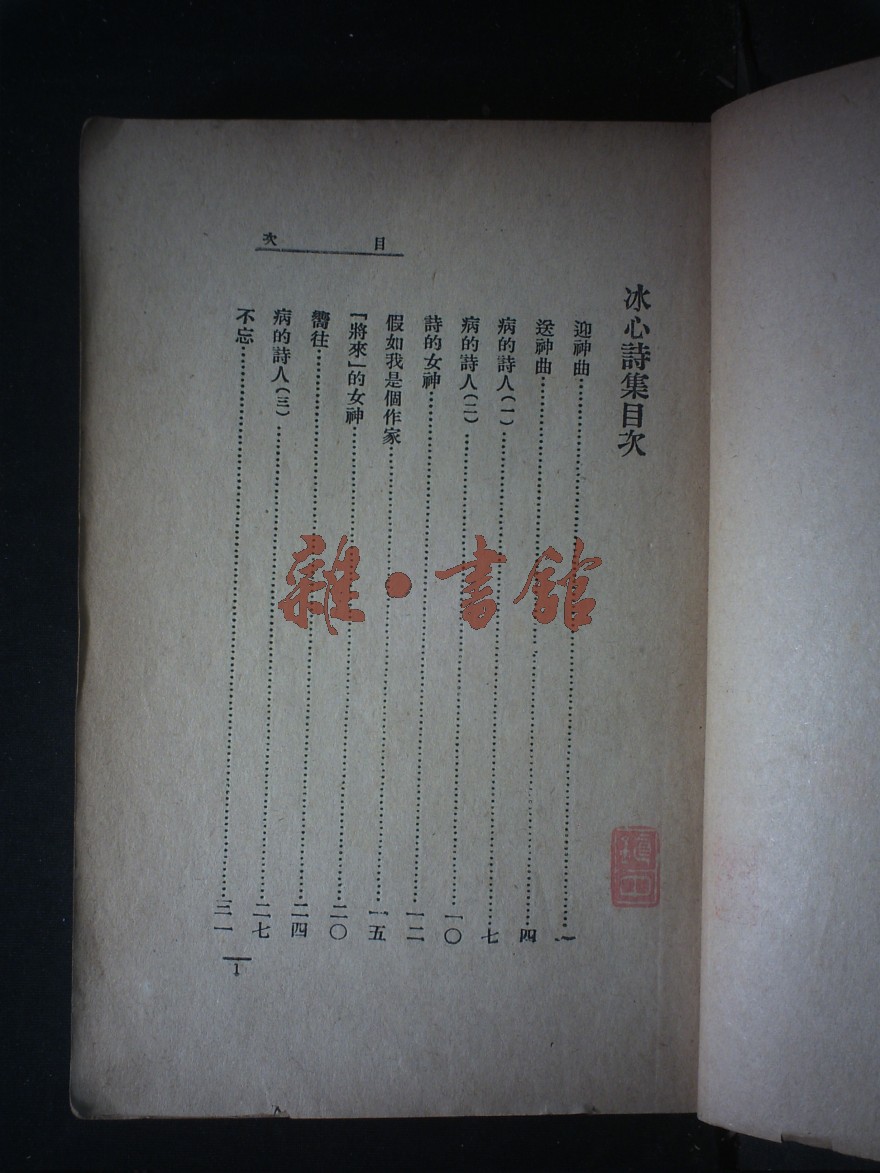 目次
冰心詩集目次
迎神曲……一
送神曲……四
病的詩人(一)……七
病的詩人(二)……一〇
詩的女神……一二
假如我是個作家……一五
「將來」的女神……二〇
嚮往……二四
病的詩人(三)……二七
不忘……三一
1
雜·書館